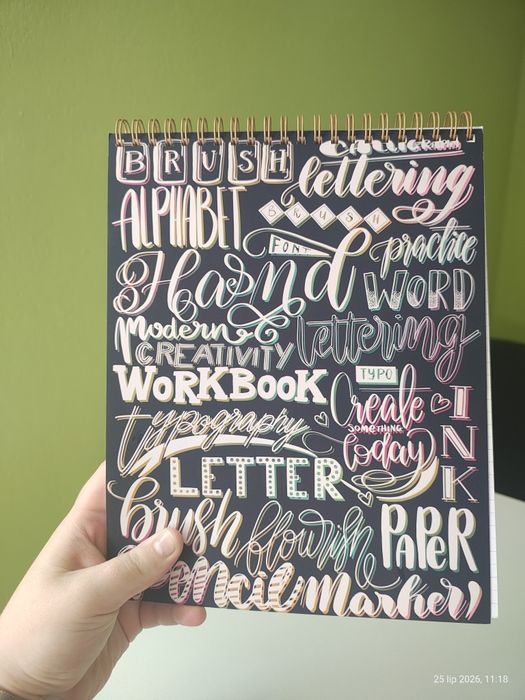 BRUSH
lettering
ALPHABET
BRUSH
FONT
practice
Hand
WORD
modern
lettering
CREATIVITY
TYPO
WORKBOOK
Create
SOMETHING
today
INK
typography
LETTER
brush
flourish
PAPER
pencil
marker
25 lip 2026, 11:18